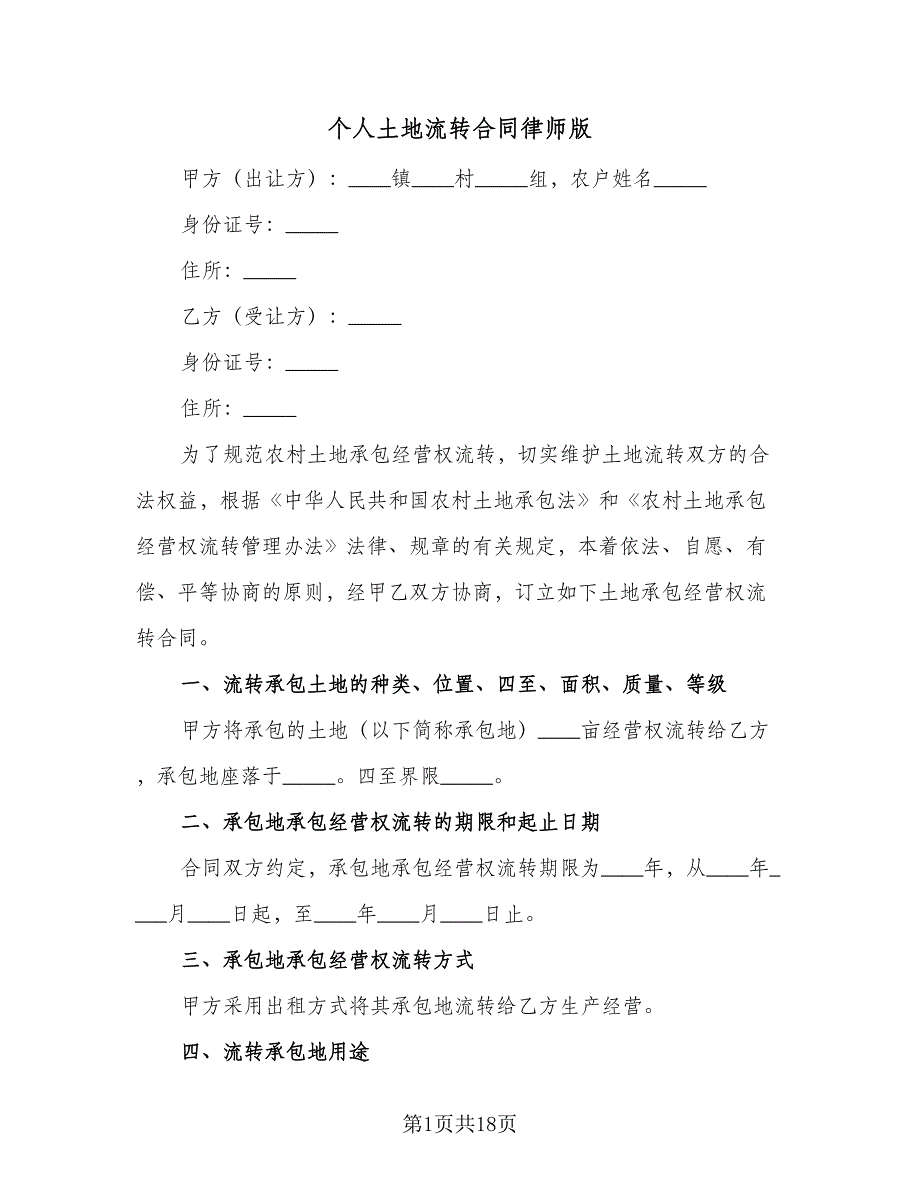 个人土地流转合同律师版
甲方（出让方）：____镇____村_____组，农户姓名_____
身份证号：_____
住所：_____
乙方（受让方）：_____
身份证号：_____
住所：_____
为了规范农村土地承包经营权流转，切实维护土地流转双方的合
法权益，根据《中华人民共和国农村土地承包法》和《农村土地承包
经营权流转管理办法》法律、规章的有关规定，本着依法、自愿、有
偿、平等协商的原则，经甲乙双方协商，订立如下土地承包经营权流
转合同。
一、流转承包土地的种类、位置、四至、面积、质量、等级
甲方将承包的土地（以下简称承包地）____亩经营权流转给乙方
，承包地座落于_____。四至界限_____。
二、承包地承包经营权流转的期限和起止日期
合同双方约定，承包地承包经营权流转期限为____年，从____年_
___月____日起，至____年____月____日止。
三、承包地承包经营权流转方式
甲方采用出租方式将其承包地流转给乙方生产经营。
四、流转承包地用途
第1页共18页